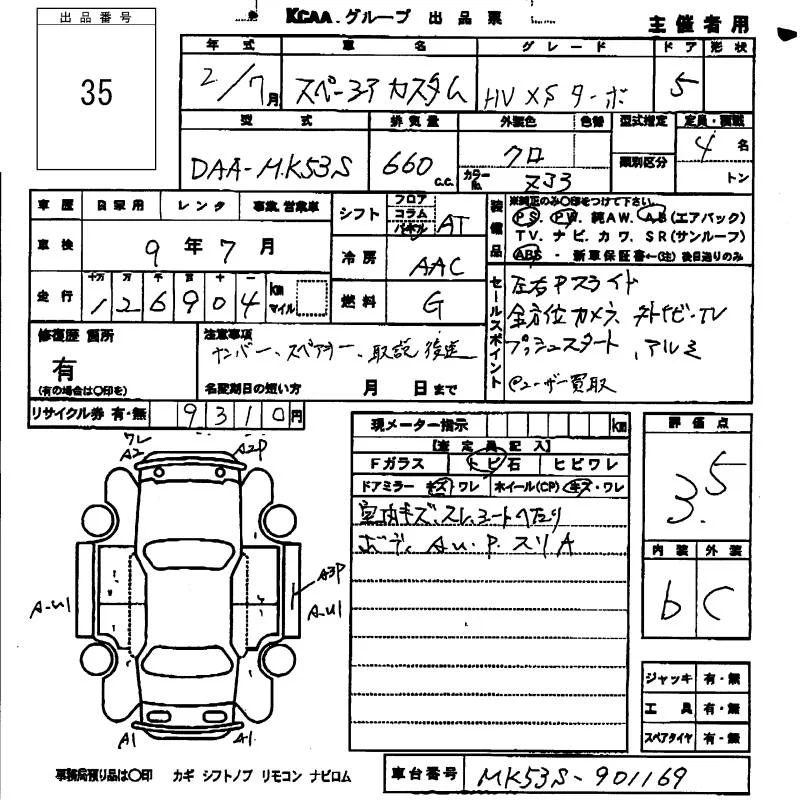 出品番号
35
KCAA.グループ 出品票
主催者用
年式 車名 グレード ドア 形状
2/7月 スペーシア カスタム HV XSターボ 5
型式 排気量 外装色 色替 型式指定 定員・積載
類別区分
DAA-MK53S 660 c.c. クロ カラーNo. ZJ3 4名 トン
車歴 自家用 レンタ 事業、営業車
車検 9年7月
走行 十万 万 千 百 十 一 126904 km マイル
シフト フロア コラム パネル AT
冷房 AAC
燃料 G
装備品 ※純正のみ○印をつけて下さい。
PS. PW. 純AW. AB(エアバック)
TV. ナビ. カワ. SR(サンルーフ)
ABS - 新車保証書←(注)後日送りのみ
セールスポイント
左右Pスライド
全方位カメラ 外ナビ・TV
プッシュスタート、アルミ
@ユーザー買取
修復歴 箇所
有
(有の場合は○印を)
注意事項
ナンバー、スペアキー、取説 後送
名変期日の短い方 月 日まで
リサイクル券 有・無 9310円
現メーター指示 km
【査定員記入】
Fガラス トビ石 ヒビワレ
ドアミラー キズ・ワレ ホイール(CP) キズ・ワレ
室内キズ、スレ、シートヘタリ
ボディ AU.P.スリA
評価点
3.5
内装 外装
b C
ワレ
A2 A2P
A-U1 A3P
A-U1
A1 A1
ジャッキ 有・無
工具 有・無
スペアタイヤ 有・無
事務局預り品は○印 カギ シフトノブ リモコン ナビロム
車台番号 MK53S-901169